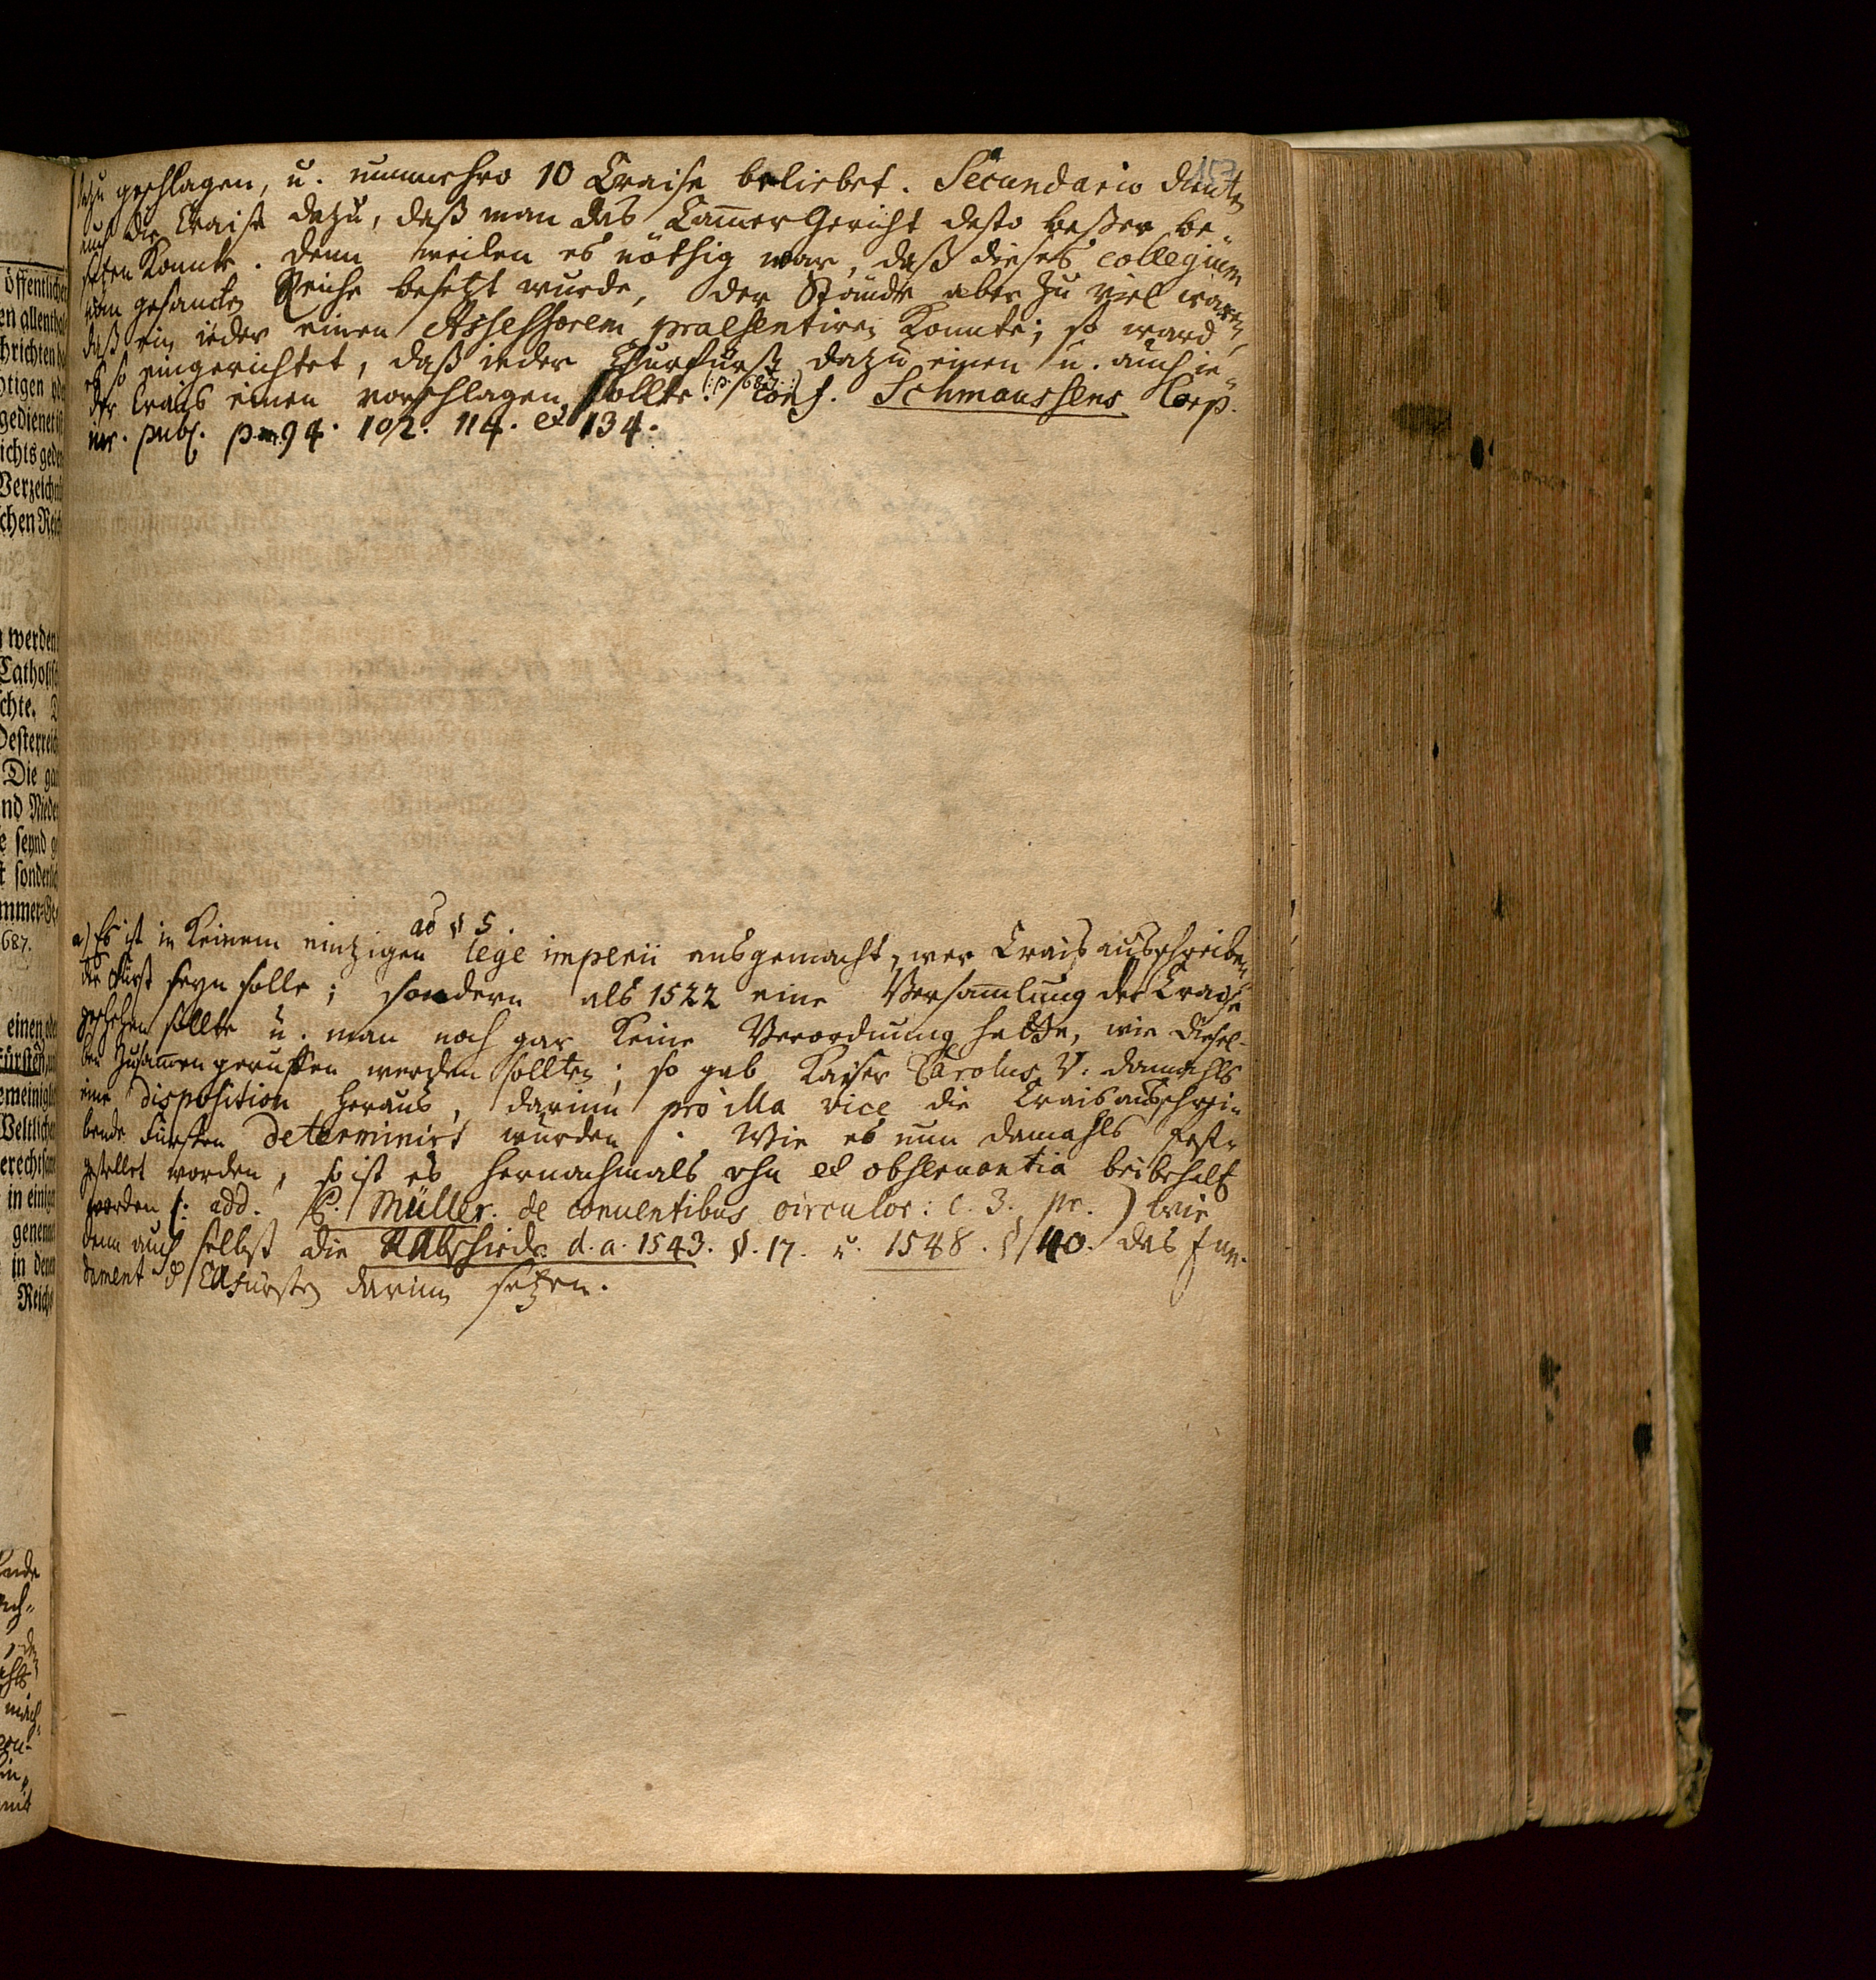 157
dazu geschlagen, u. nunmehro 10 Craise beliebet. Secundario dienten
auch die Craise dazu, daß man das Cammer Gericht desto beßer be-
setzen konnte. Denn weilen es nöthig war, daß dieses collegium
vom gesamten Reiche besetzt wurde, der Stände aber zu viel waren,
daß ein ieder einen Assessorem praesentiren konnte; so ward
es so eingerichtet, daß ieder Churfürst dazu einen u. auch ie-
der Crais einen vorschlagen sollte. (:p. 687.:) conf. Schmaussens Corp.
iur. publ. p.m. 94. 102. 114. et 134.
ad § 5.
a) Es ist in keinem eintzigen lege imperii ausgemacht, wer Craisausschreiben-
der Fürst seyn solle; sondern als 1522 eine Versamlung der Craise
geschehen sollte u. man noch gar keine Verordnung hatte, wie diesel-
ben zusamengeruffen werden sollten; so gab Kayser Carolus V. damahls
eine disposition heraus, darinn pro illa vice die Craisausschrei-
bende Fürsten determinirt wurden. Wie es nun damahls fest-
gestellet worden, so ist es hernachmals observantia beibehalt
worden (: add. P. Müller. de conventibus circulor: c. 3. pr.) wie
denn auch selbst die RAbschiede d. a. 1543. §. 17. u. 1548. § 40. das fun-
dament darinn setzen.
öffentlichen
en allenthal
hrichten
htigen
gedienet
ichts gede
Verzeichn
schen Reich
werden
Catholi
chte.
Oesterreich
Die ga
nd Nieder
e seynd g
t sonderlich
mmer-Ge
687.
einen
Fürsten
emeinigl
Weltliche
erechtsam
in einig
in denen
Reichs